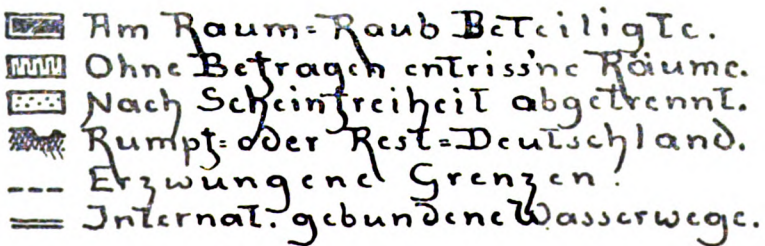 Am Raum=Raub Beteiligte.
Ohne Befragen entriss'ne Räume.
Nach Scheinfreiheit abgetrennt.
Rumpf= oder Rest=Deutschland.
Erzwungene Grenzen.
Internat. gebundene Wasserwege.